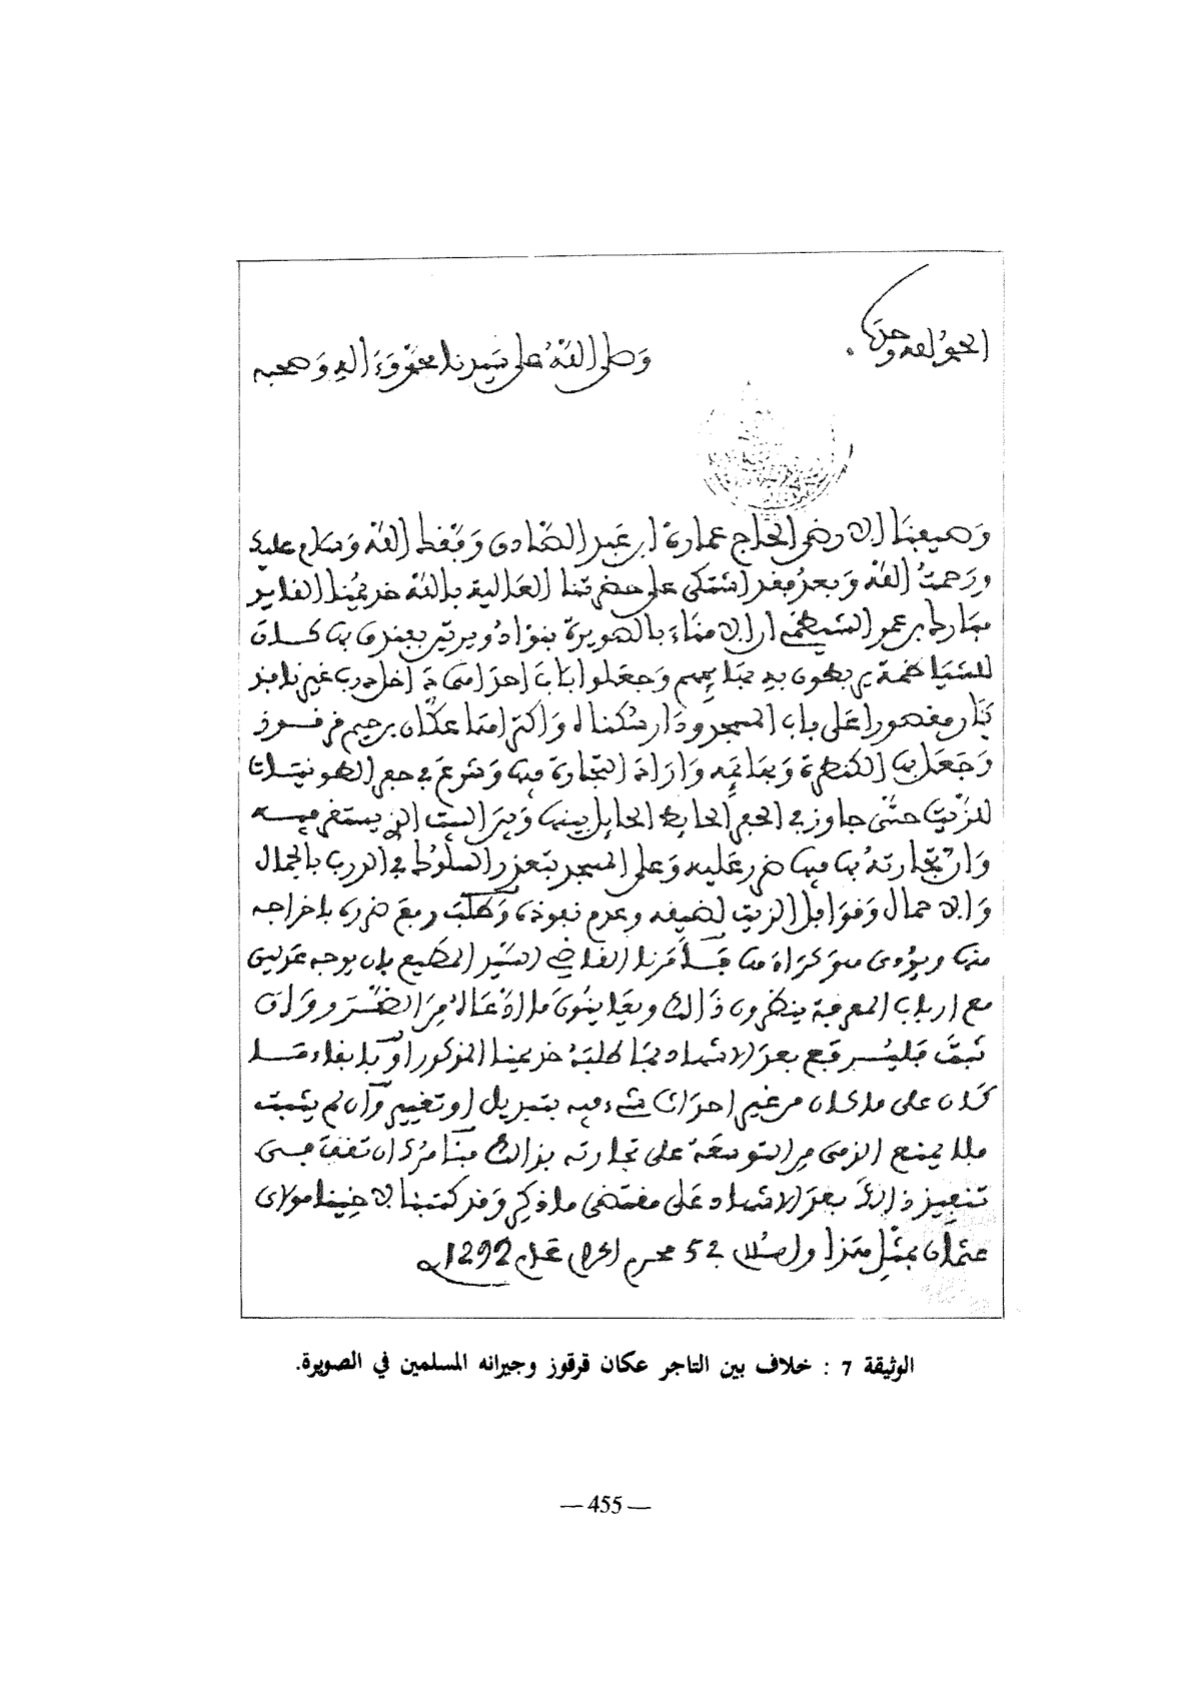 الحمد لله وحده
وصلى الله على سيدنا محمد وءاله وصحبه
وصيفنا الارضى الحاج عمارة ابن عبد الصادق وفقك الله وسلام عليك
ورحمت الله وبعد فقد اشتكى على حضرتنا العالية بالله خديمنا القايد
مبارك بن عمر الشيظمي ان الامناء بالصويرة بنوا دويرتين بفندق بها كان
للشياظمة يربطون به بهايمهم وجعلوا باب احداهما داخل درب غير نافذ
كان مقصورا على باب المسجد ودار سكناه واكتراها عكان بن حيم قرقوز
وجعل بها الكنطرة وبهايمه واراد التجارة فيها وشرع في حفر الطونيلات
للزيت حتى جاوز في الحفر الحايط الحايل بينها وبين البيت الذي يستقر فيه
وان تجارته بها فيها ضرر عليه وعلى المسجد بتعذر السلوك في الدرب بالجمال
والاحمال وقوافل الزيت لضيقه وعدم نفوذه وطلب رفع ضرره باخراجه
منها ويؤدي هو كراءها فأمرنا القاضي السيد المطيع بان يوجه عدلين
مع ارباب المعرفة ينظرون ذالك ويعاينون ما ادعاه من الضرر وان
ثبت فليرفع بعد الاشهاد بما طلبه خديمنا المذكور او بابقاء ما
كان على ما كان من غير احداث شيء فيه بتبديل او تغيير وان لم يثبت
فلا يمنع الذمي من التوسعة على تجارته بذالك فنامرك ان تقف في
تنفيذ ذالك بعد الاشهاد على مقتضى ما ذكر وقد كتبنا لاخينا مولاي
عثمان بمثل هذا والسلام في 25 محرم الحرام عام 1292
الوثيقة 7 : خلاف بين التاجر عكان قرقوز وجيرانه المسلمين في الصويرة.
— 455 —